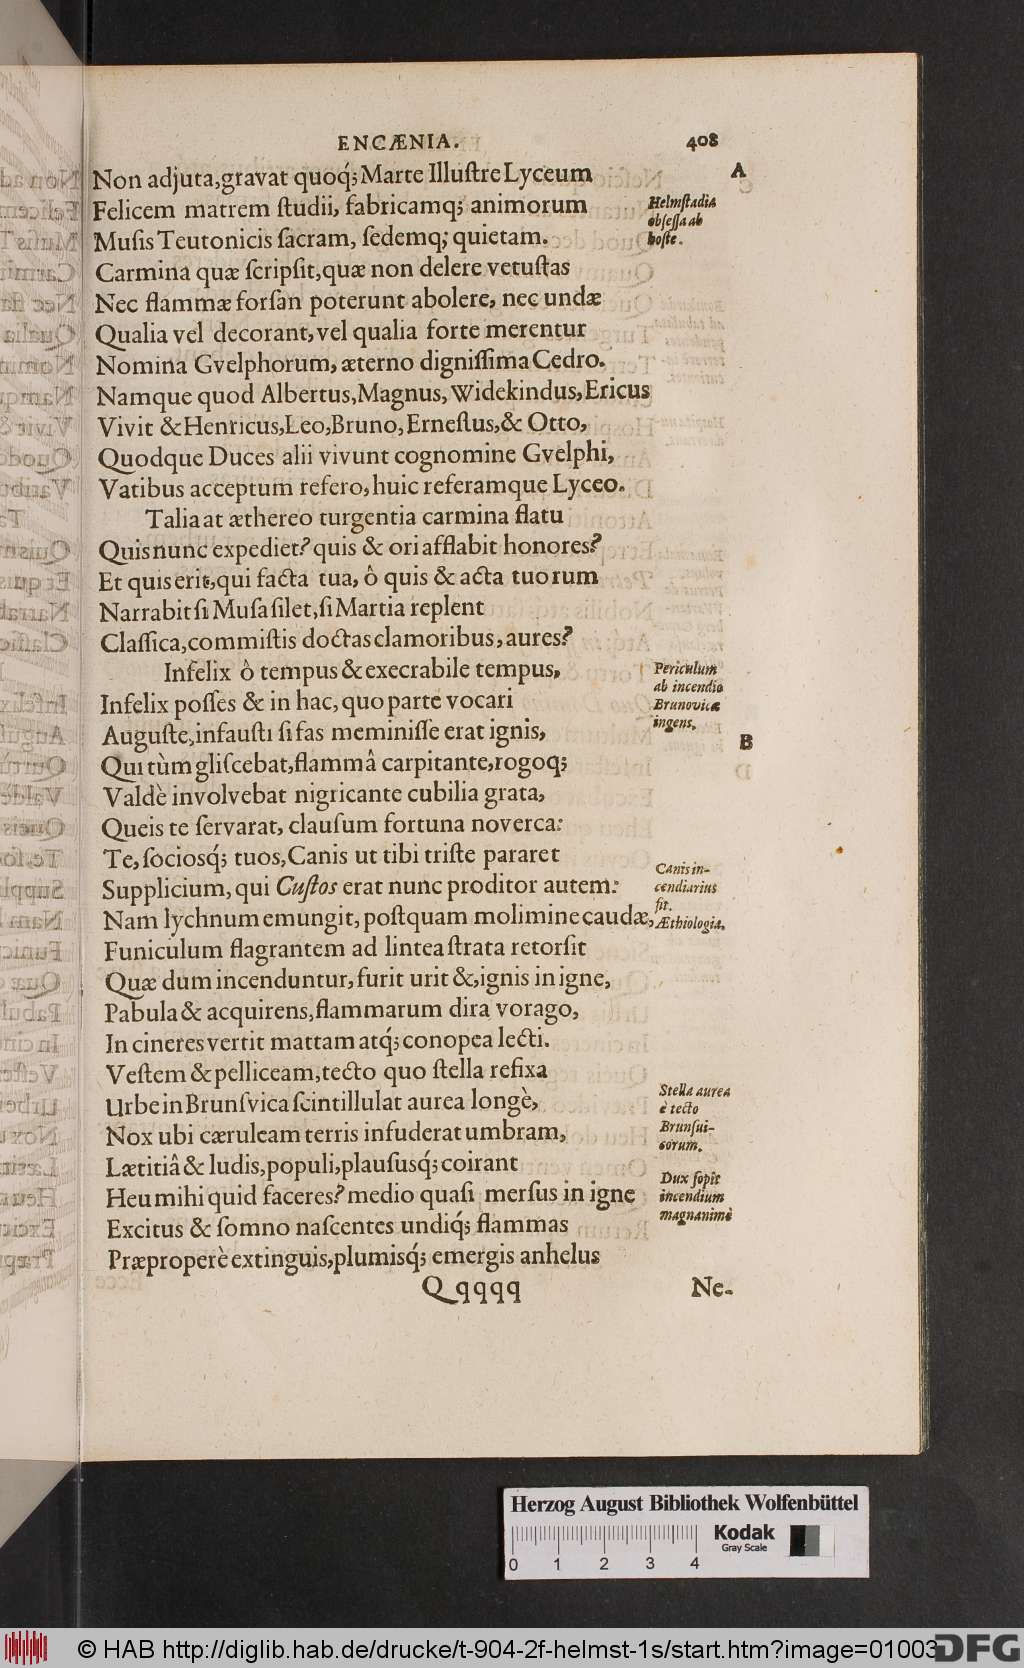 ENCÆNIA. 408
A
Non adjuta, gravat quoq́; Marte Illuſtre Lyceum
Felicem matrem ſtudii, fabricamq; animorum
Helmſtadia
obſeſſa ab
hoſte.
Muſis Teutonicis ſacram, ſedemq; quietam.
Carmina quæ ſcripſit, quæ non delere vetuſtas
Nec flammæ forſan poterunt abolere, nec undæ
Qualia vel decorant, vel qualia forte merentur
Nomina Gvelphorum, æterno digniſſima Cedro.
Namque quod Albertus, Magnus, Widekindus, Ericus
Vivit & Henricus, Leo, Bruno, Erneſtus, & Otto,
Quodque Duces alii vivunt cognomine Gvelphi,
Vatibus acceptum refero, huic referamque Lyceo.
Talia at æthereo turgentia carmina flatu
Quis nunc expediet? quis & ori afflabit honores?
Et quis erit, qui facta tua, ô quis & acta tuorum
Narrabit ſi Muſa ſilet, ſi Martia replent
Claſſica, commiſtis doctas clamoribus, aures?
Infelix ô tempus & execrabile tempus,
Periculum
ab incendio
Brunovicæ
ingens.
Infelix poſſes & in hac, quo parte vocari
Auguſte, infauſti ſi fas meminiſſe erat ignis,
B
Qui tùm gliſcebat, flammâ carpitante, rogoq;
Valdè involvebat nigricante cubilia grata,
Queis te ſervarat, clauſum fortuna noverca:
Te, ſociosq́; tuos, Canis ut tibi triſte pararet
Supplicium, qui Cuſtos erat nunc proditor autem:
Canis in-
cendiarius
fit.
Æthiologia.
Nam lychnum emungit, poſtquam molimine caudæ,
Funiculum flagrantem ad lintea ſtrata retorſit
Quæ dum incenduntur, furit urit &, ignis in igne,
Pabula & acquirens, flammarum dira vorago,
In cineres vertit mattam atq́; conopea lecti.
Veſtem & pelliceam, tecto quo ſtella refixa
Urbe in Brunſvica ſcintillulat aurea longè,
Stella aurea
è tecto
Brunſui-
corum.
Nox ubi cæruleam terris infuderat umbram,
Lætitiâ & ludis, populi, plauſusq́; coirant
Heu mihi quid faceres? medio quaſi merſus in igne
Dux ſopit
incendium
magnanimè
Excitus & ſomno naſcentes undiq́; flammas
Præproperè extinguis, plumisq́; emergis anhelus
Qqqqq
Ne-
Herzog August Bibliothek Wolfenbüttel
0 1 2 3 4
Kodak
Gray Scale
© HAB http://diglib.hab.de/drucke/t-904-2f-helmst-1s/start.htm?image=01003
DFG